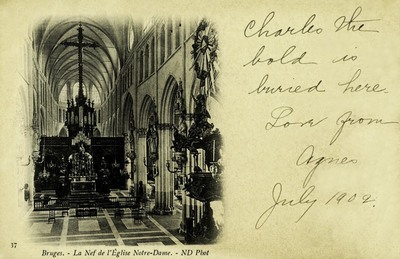 Charles the
bold is
buried here.
Love from
Agnes
July 1902.
37
Bruges. - La Nef de l'Église Notre-Dame. - ND Phot